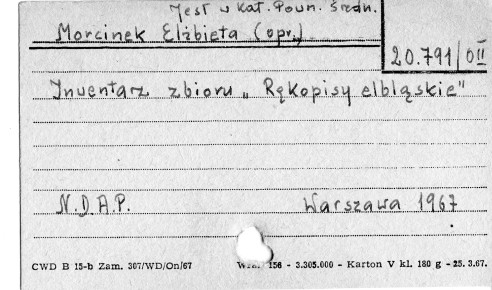 Jest w Kat. Pown. Średn.
Morcinek Elżbieta (opr.)
20.791/OII
Inwentarz zbioru „Rękopisy elbląskie"
N.D.A.P. Warszawa 1967
CWD B 15-b Zam. 307/WD/On/67 156 - 3.305.000 - Karton V kl. 180 g - 25.3.67.